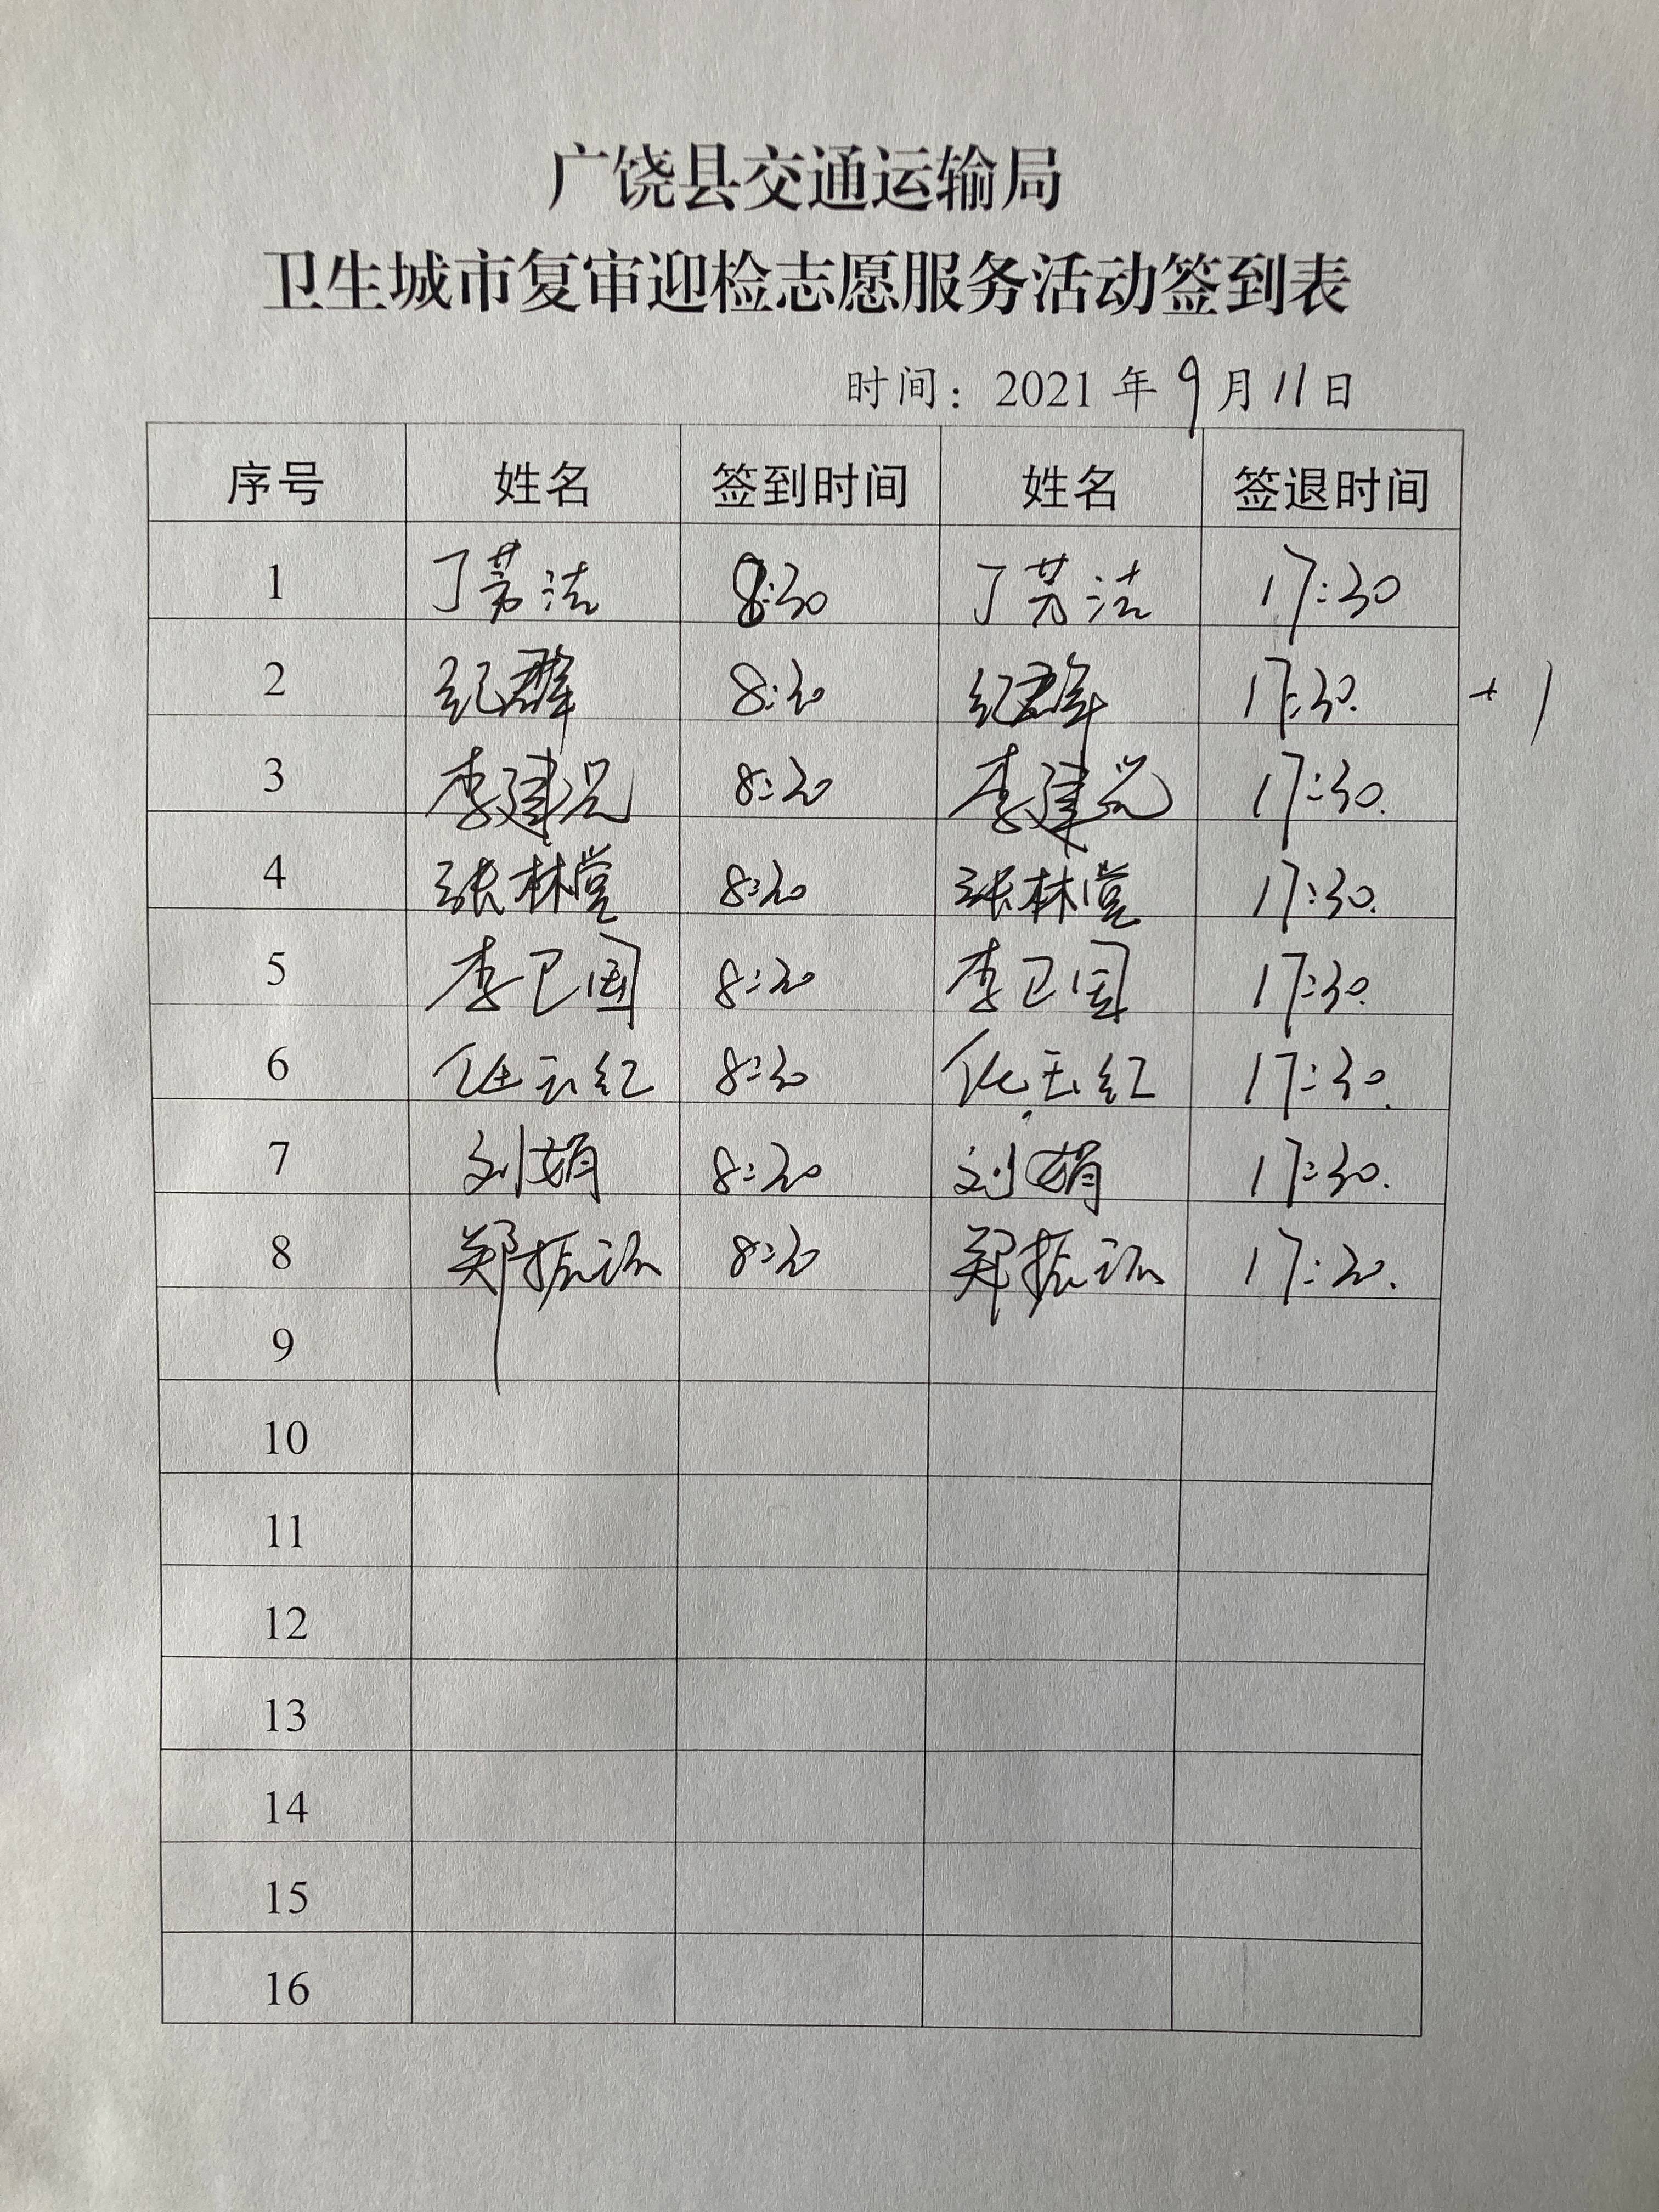 广饶县交通运输局
卫生城市复审迎检志愿服务活动签到表
时间：2021 年 9 月 11 日
序号 姓名 签到时间 姓名 签退时间
1 丁芳洁 8:30 丁芳洁 17:30
2 纪群 8:30 纪群 17:30. +1
3 李建 8:30 李建 17:30.
4 张林堂 8:30 张林堂 17:30.
5 李卫国 8:30 李卫国 17:30.
6 8:30 17:30.
7 刘娟 8:30 刘娟 17:30.
8 郑振 8:30 郑振 17:30.
9
10
11
12
13
14
15
16